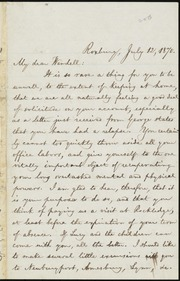 Roxbury, July 12, 1872.
My dear Wendell:
It is so rare a thing for you to be
unwell, to the extent of keeping at home,
that we are all naturally feeling a good deal
of solicitude on your account, especially
as a letter just received from George states
that you have had a relapse. You certain-
ly cannot too quickly throw aside all your
office labor, and give yourself to the one
vitally important object of recuperating
your long overtasked mental and physical
powers. I am glad to hear, therefore, that it
is your purpose to do so, and that you
think of paying us a visit at Rockledge,
at least before the expiration of your term
of absence. If Lucy and the children can
come with you, all the better. I should like
to make several little excursions with you
to Newburyport, Amesbury, Lynn, &c.